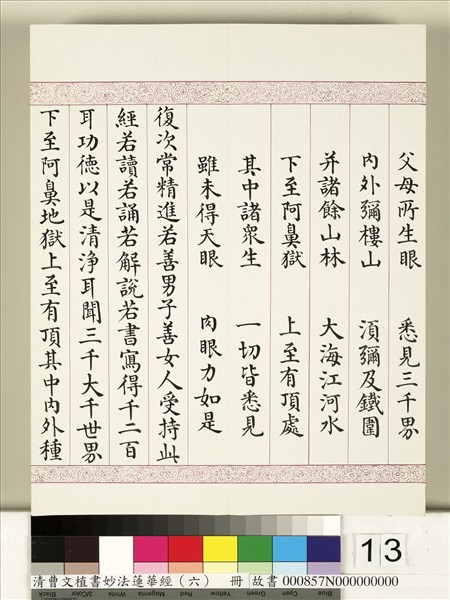 父母所生眼　悉見三千界
內外彌樓山　須彌及鐵圍
并諸餘山林　大海江河水
下至阿鼻獄　上至有頂處
其中諸眾生　一切皆悉見
雖未得天眼　肉眼力如是
復次常精進若善男子善女人受持此
經若讀若誦若解說若書寫得千二百
耳功德以是清淨耳聞三千大千世界
下至阿鼻地獄上至有頂其中內外種
13
Black 3/Color White Magenta Red Yellow Green Cyan Blue
清曹文植書妙法蓮華經（六）　冊 故書 000857N000000000